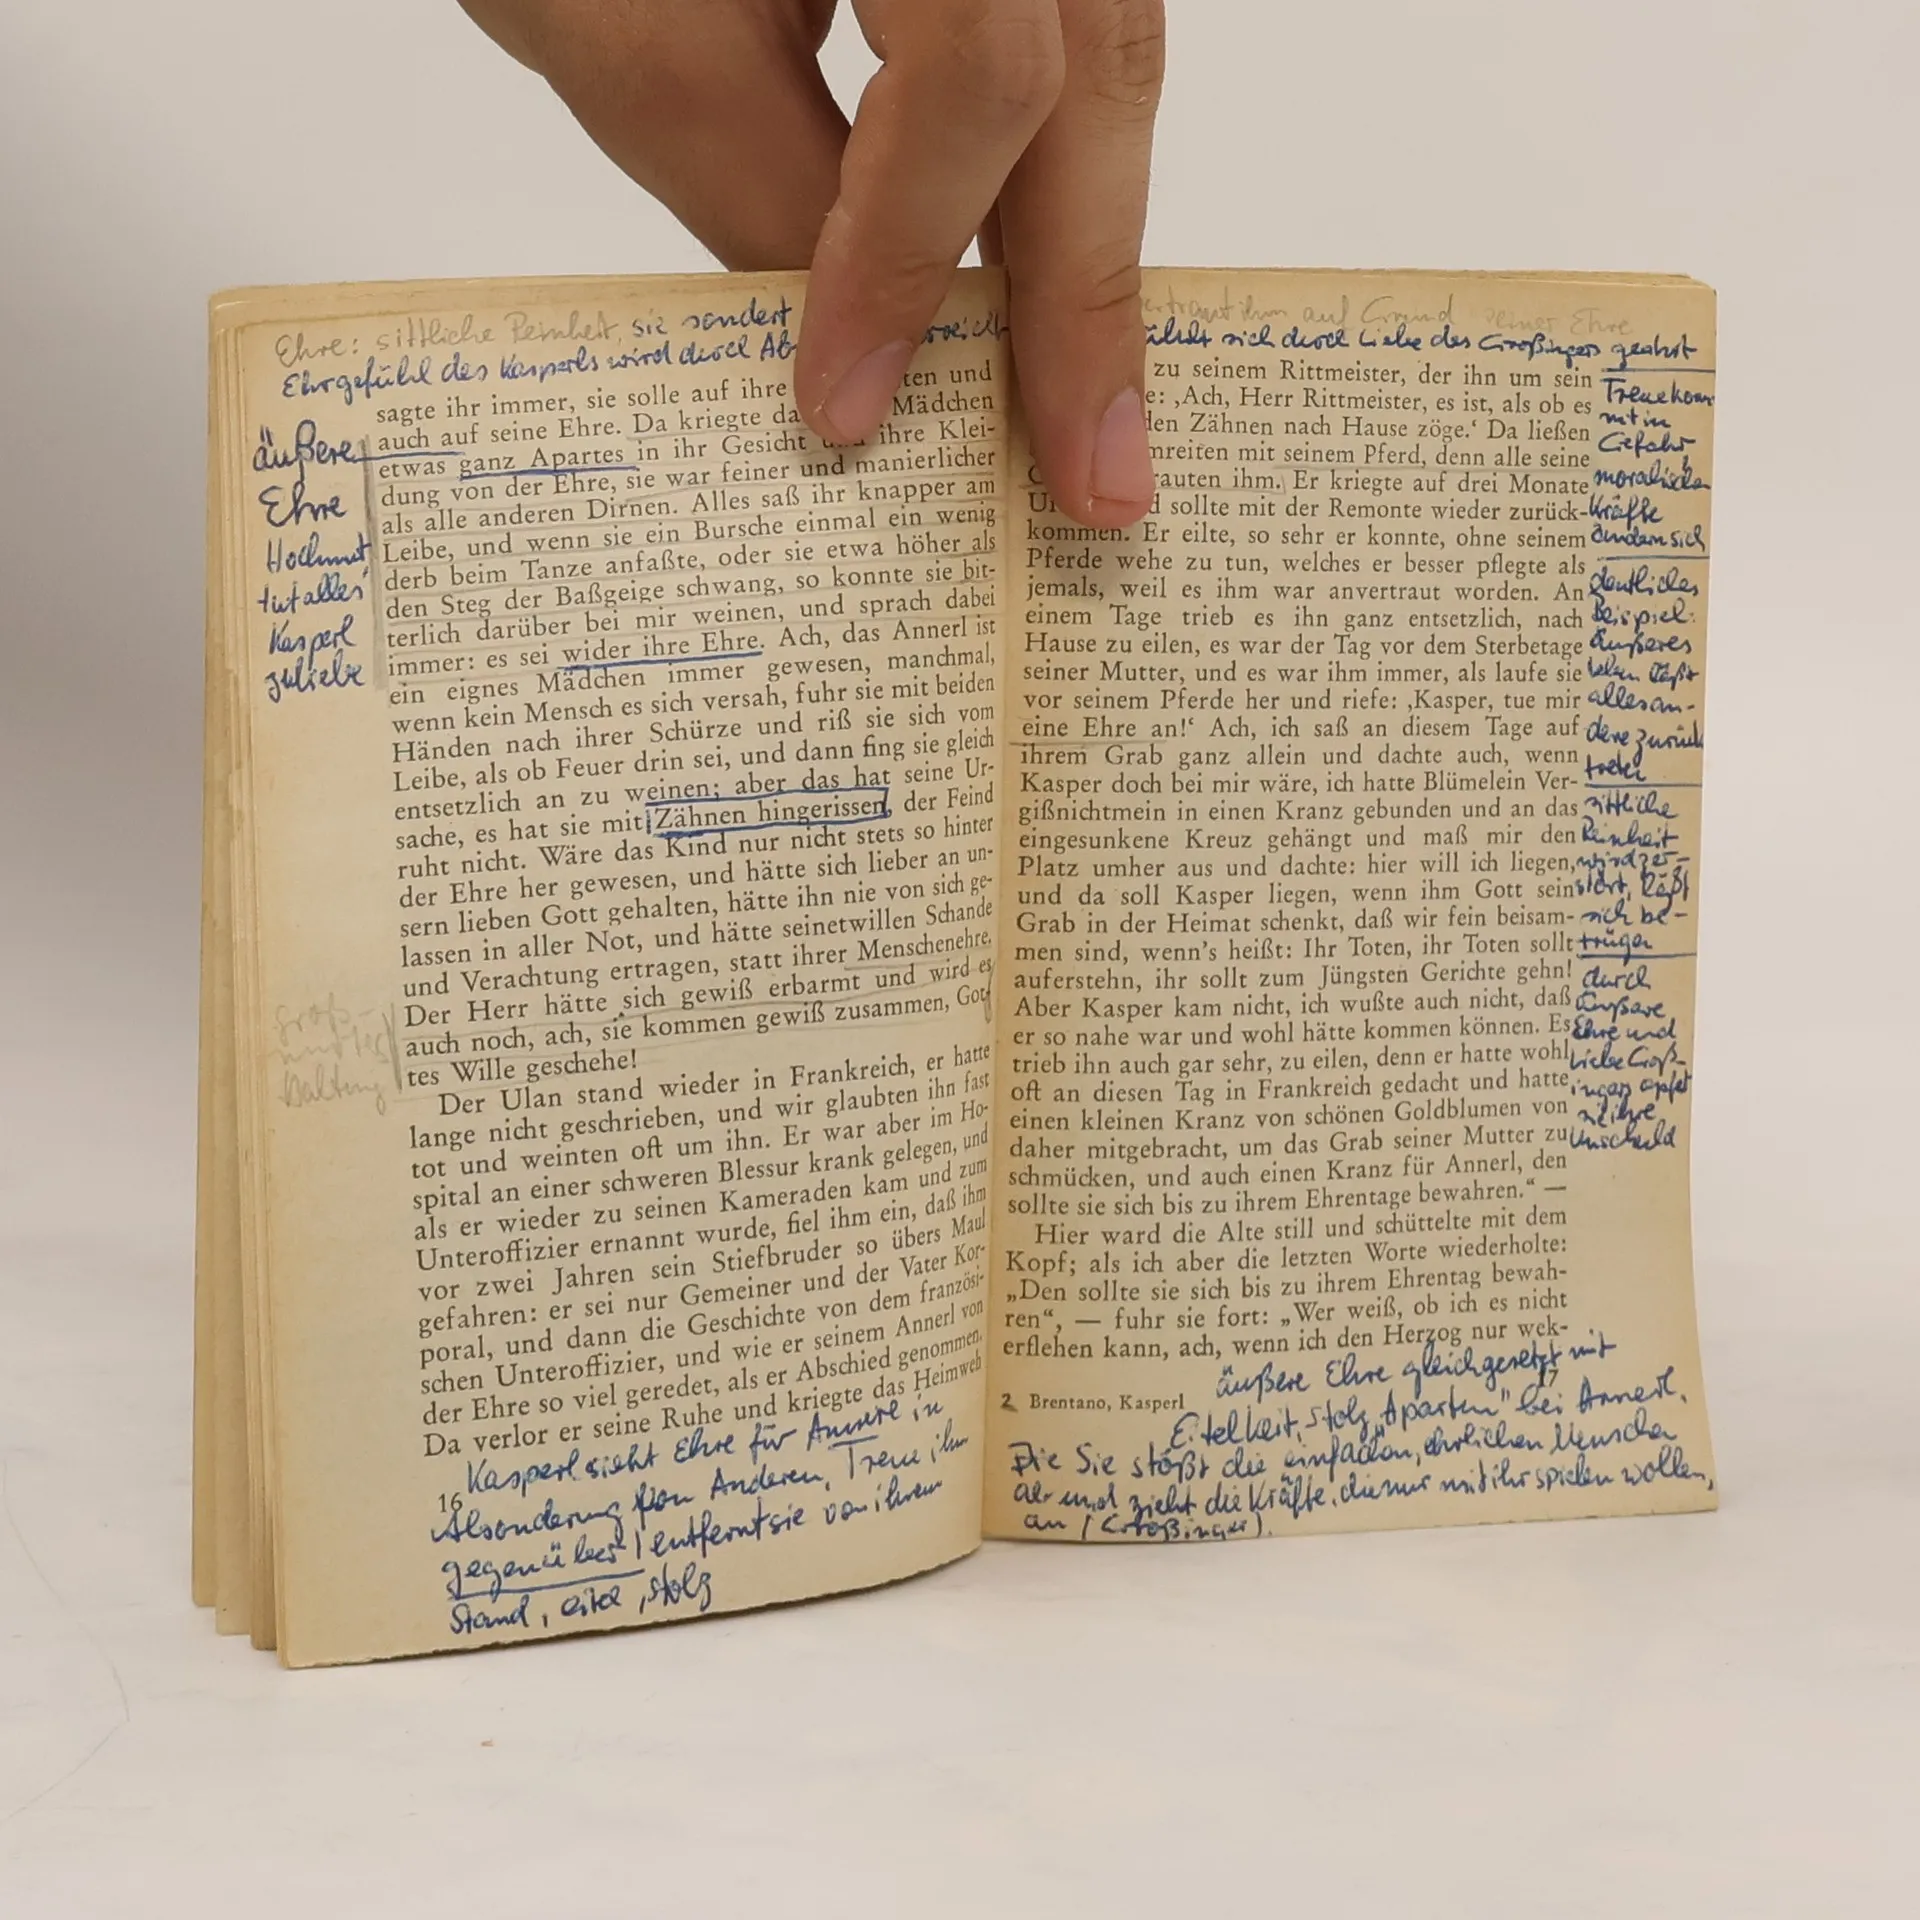 Ehre: sittliche Reinheit, sie sondert
Ehrgefühl des Kasperls wird durch Ab
sagte ihr immer, sie solle auf ihre ten und
auch auf seine Ehre. Da kriegte da Mädchen
etwas ganz Apartes in ihr Gesicht und ihre Klei-
dung von der Ehre, sie war feiner und manierlicher
als alle anderen Dirnen. Alles saß ihr knapper am
Leibe, und wenn sie ein Bursche einmal ein wenig
derb beim Tanze anfaßte, oder sie etwa höher als
den Steg der Baßgeige schwang, so konnte sie bit-
terlich darüber bei mir weinen, und sprach dabei
immer: es sei wider ihre Ehre. Ach, das Annerl ist
ein eignes Mädchen immer gewesen, manchmal,
wenn kein Mensch es sich versah, fuhr sie mit beiden
Händen nach ihrer Schürze und riß sie sich vom
Leibe, als ob Feuer drin sei, und dann fing sie gleich
entsetzlich an zu weinen; aber das hat seine Ur-
sache, es hat sie mit Zähnen hingerissen, der Feind
ruht nicht. Wäre das Kind nur nicht stets so hinter
der Ehre her gewesen, und hätte sich lieber an un-
sern lieben Gott gehalten, hätte ihn nie von sich ge-
lassen in aller Not, und hätte seinetwillen Schande
und Verachtung ertragen, statt ihrer Menschenehre.
Der Herr hätte sich gewiß erbarmt und wird es
auch noch, ach, sie kommen gewiß zusammen, Got-
tes Wille geschehe!
Der Ulan stand wieder in Frankreich, er hatte
lange nicht geschrieben, und wir glaubten ihn fast
tot und weinten oft um ihn. Er war aber im Ho-
spital an einer schweren Blessur krank gelegen, und
als er wieder zu seinen Kameraden kam und zum
Unteroffizier ernannt wurde, fiel ihm ein, daß ihm
vor zwei Jahren sein Stiefbruder so übers Maul
gefahren: er sei nur Gemeiner und der Vater Kor-
poral, und dann die Geschichte von dem französi-
schen Unteroffizier, und wie er seinem Annerl von
der Ehre so viel geredet, als er Abschied genommen.
Da verlor er seine Ruhe und kriegte das Heimweh
äußere
Ehre
Hochmut
tut alles
Kasperl
zuliebe
Kasperl sieht Ehre für Annerl in
16
Absonderung von Anderen, Treue ihm
gegenüber entfernt sie von ihrem
Stand, eitel, stolz
vertraut ihm auf Grund seiner Ehre
fühlt sich durch Liebe des Großingers geehrt
zu seinem Rittmeister, der ihn um sein
e: ‚Ach, Herr Rittmeister, es ist, als ob es
den Zähnen nach Hause zöge.‘ Da ließen
mreiten mit seinem Pferd, denn alle seine
rauten ihm. Er kriegte auf drei Monate
Ur d sollte mit der Remonte wieder zurück-
kommen. Er eilte, so sehr er konnte, ohne seinem
Pferde wehe zu tun, welches er besser pflegte als
jemals, weil es ihm war anvertraut worden. An
einem Tage trieb es ihn ganz entsetzlich, nach
Hause zu eilen, es war der Tag vor dem Sterbetage
seiner Mutter, und es war ihm immer, als laufe sie
vor seinem Pferde her und riefe: ‚Kasper, tue mir
eine Ehre an!‘ Ach, ich saß an diesem Tage auf
ihrem Grab ganz allein und dachte auch, wenn
Kasper doch bei mir wäre, ich hatte Blümelein Ver-
gißnichtmein in einen Kranz gebunden und an das
eingesunkene Kreuz gehängt und maß mir den
Platz umher aus und dachte: hier will ich liegen,
und da soll Kasper liegen, wenn ihm Gott sein
Grab in der Heimat schenkt, daß wir fein beisam-
men sind, wenn's heißt: Ihr Toten, ihr Toten sollt
auferstehn, ihr sollt zum Jüngsten Gerichte gehn!
Aber Kasper kam nicht, ich wußte auch nicht, daß
er so nahe war und wohl hätte kommen können. Es
trieb ihn auch gar sehr, zu eilen, denn er hatte wohl
oft an diesen Tag in Frankreich gedacht und hatte
einen kleinen Kranz von schönen Goldblumen von
daher mitgebracht, um das Grab seiner Mutter zu
schmücken, und auch einen Kranz für Annerl, den
sollte sie sich bis zu ihrem Ehrentage bewahren.“ —
Hier ward die Alte still und schüttelte mit dem
Kopf; als ich aber die letzten Worte wiederholte:
„Den sollte sie sich bis zu ihrem Ehrentag bewah-
ren“, — fuhr sie fort: „Wer weiß, ob ich es nicht
erflehen kann, ach, wenn ich den Herzog nur wek-
Treue kommt
mit in
Gefahr
moralische
Kräfte
ändern sich
deutliches
Beispiel:
äußeres
Leben läßt
alles an-
dere zurück
treten
sittliche
Reinheit
wird zer-
stört, läßt
sich be-
trügen
durch
äußere
Ehre und
Liebe Groß-
ingers opfert
sie ihre
Unschuld
äußere Ehre gleichgesetzt mit
17
2 Brentano, Kasperl
Eitelkeit, Stolz „Aparten“ bei Annerl.
Die Sie stößt die einfachen, ehrlichen Menschen
ab und zieht die Kräfte, die nur mit ihr spielen wollen,
an (Großinger).